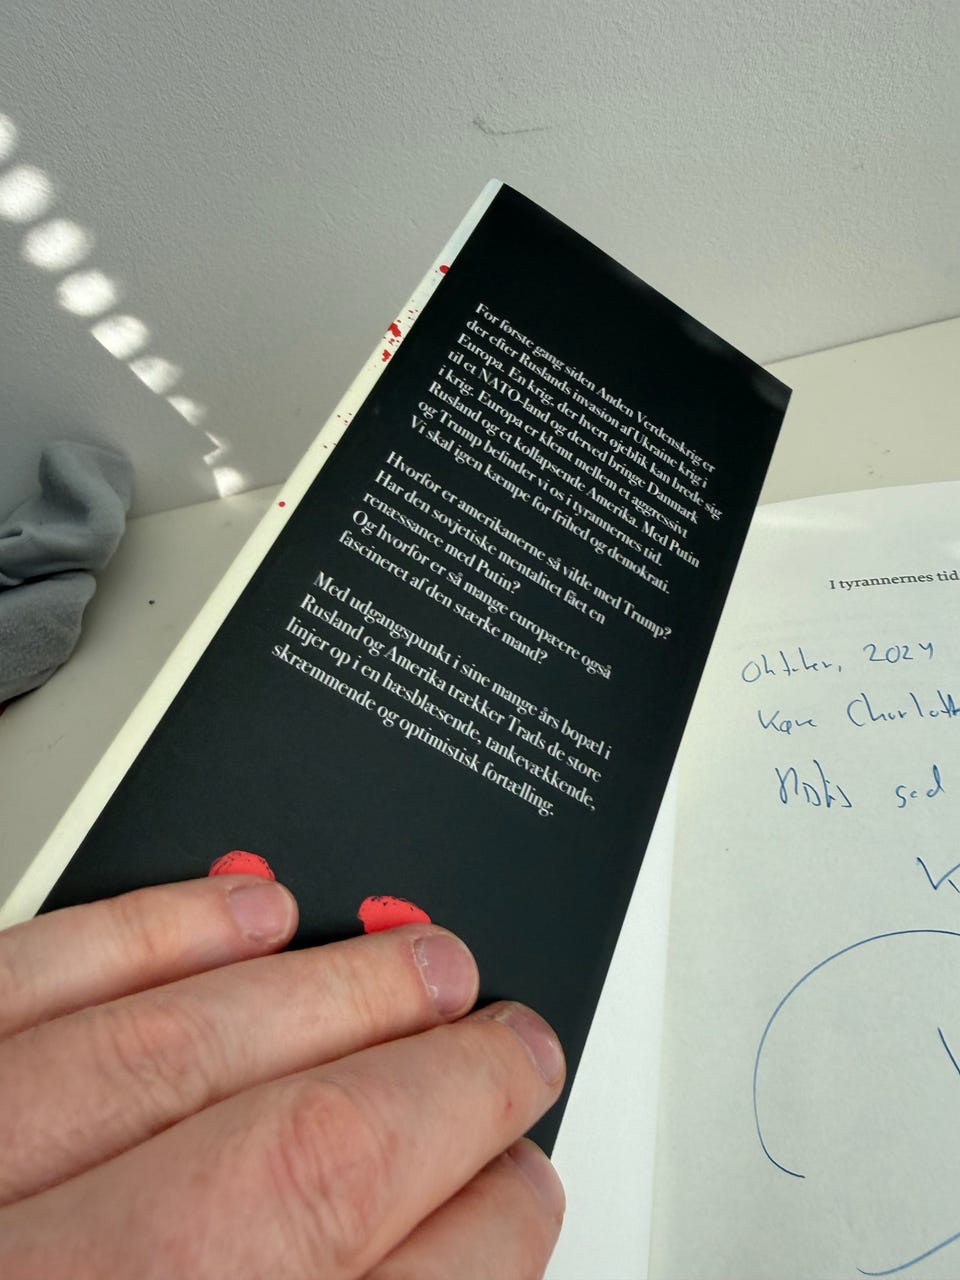 For første gang siden Anden Verdenskrig er
der efter Ruslands invasion af Ukraine krig i
Europa. En krig, der hvert øjeblik kan brede sig
til et NATO-land og derved bringe Danmark
i krig. Europa er klemt mellem et aggressivt
Rusland og et kollapsende Amerika. Med Putin
og Trump befinder vi os i tyrannernes tid.
Vi skal igen kæmpe for frihed og demokrati.
Hvorfor er amerikanerne så vilde med Trump?
Har den sovjetiske mentalitet fået en
renæssance med Putin?
Og hvorfor er så mange europæere også
fascineret af den stærke mand?
Med udgangspunkt i sine mange års bopæl i
Rusland og Amerika trækker Trads de store
linjer op i en hæsblæsende, tankevækkende,
skræmmende og optimistisk fortælling.
I tyrannernes tid
2024
Kære